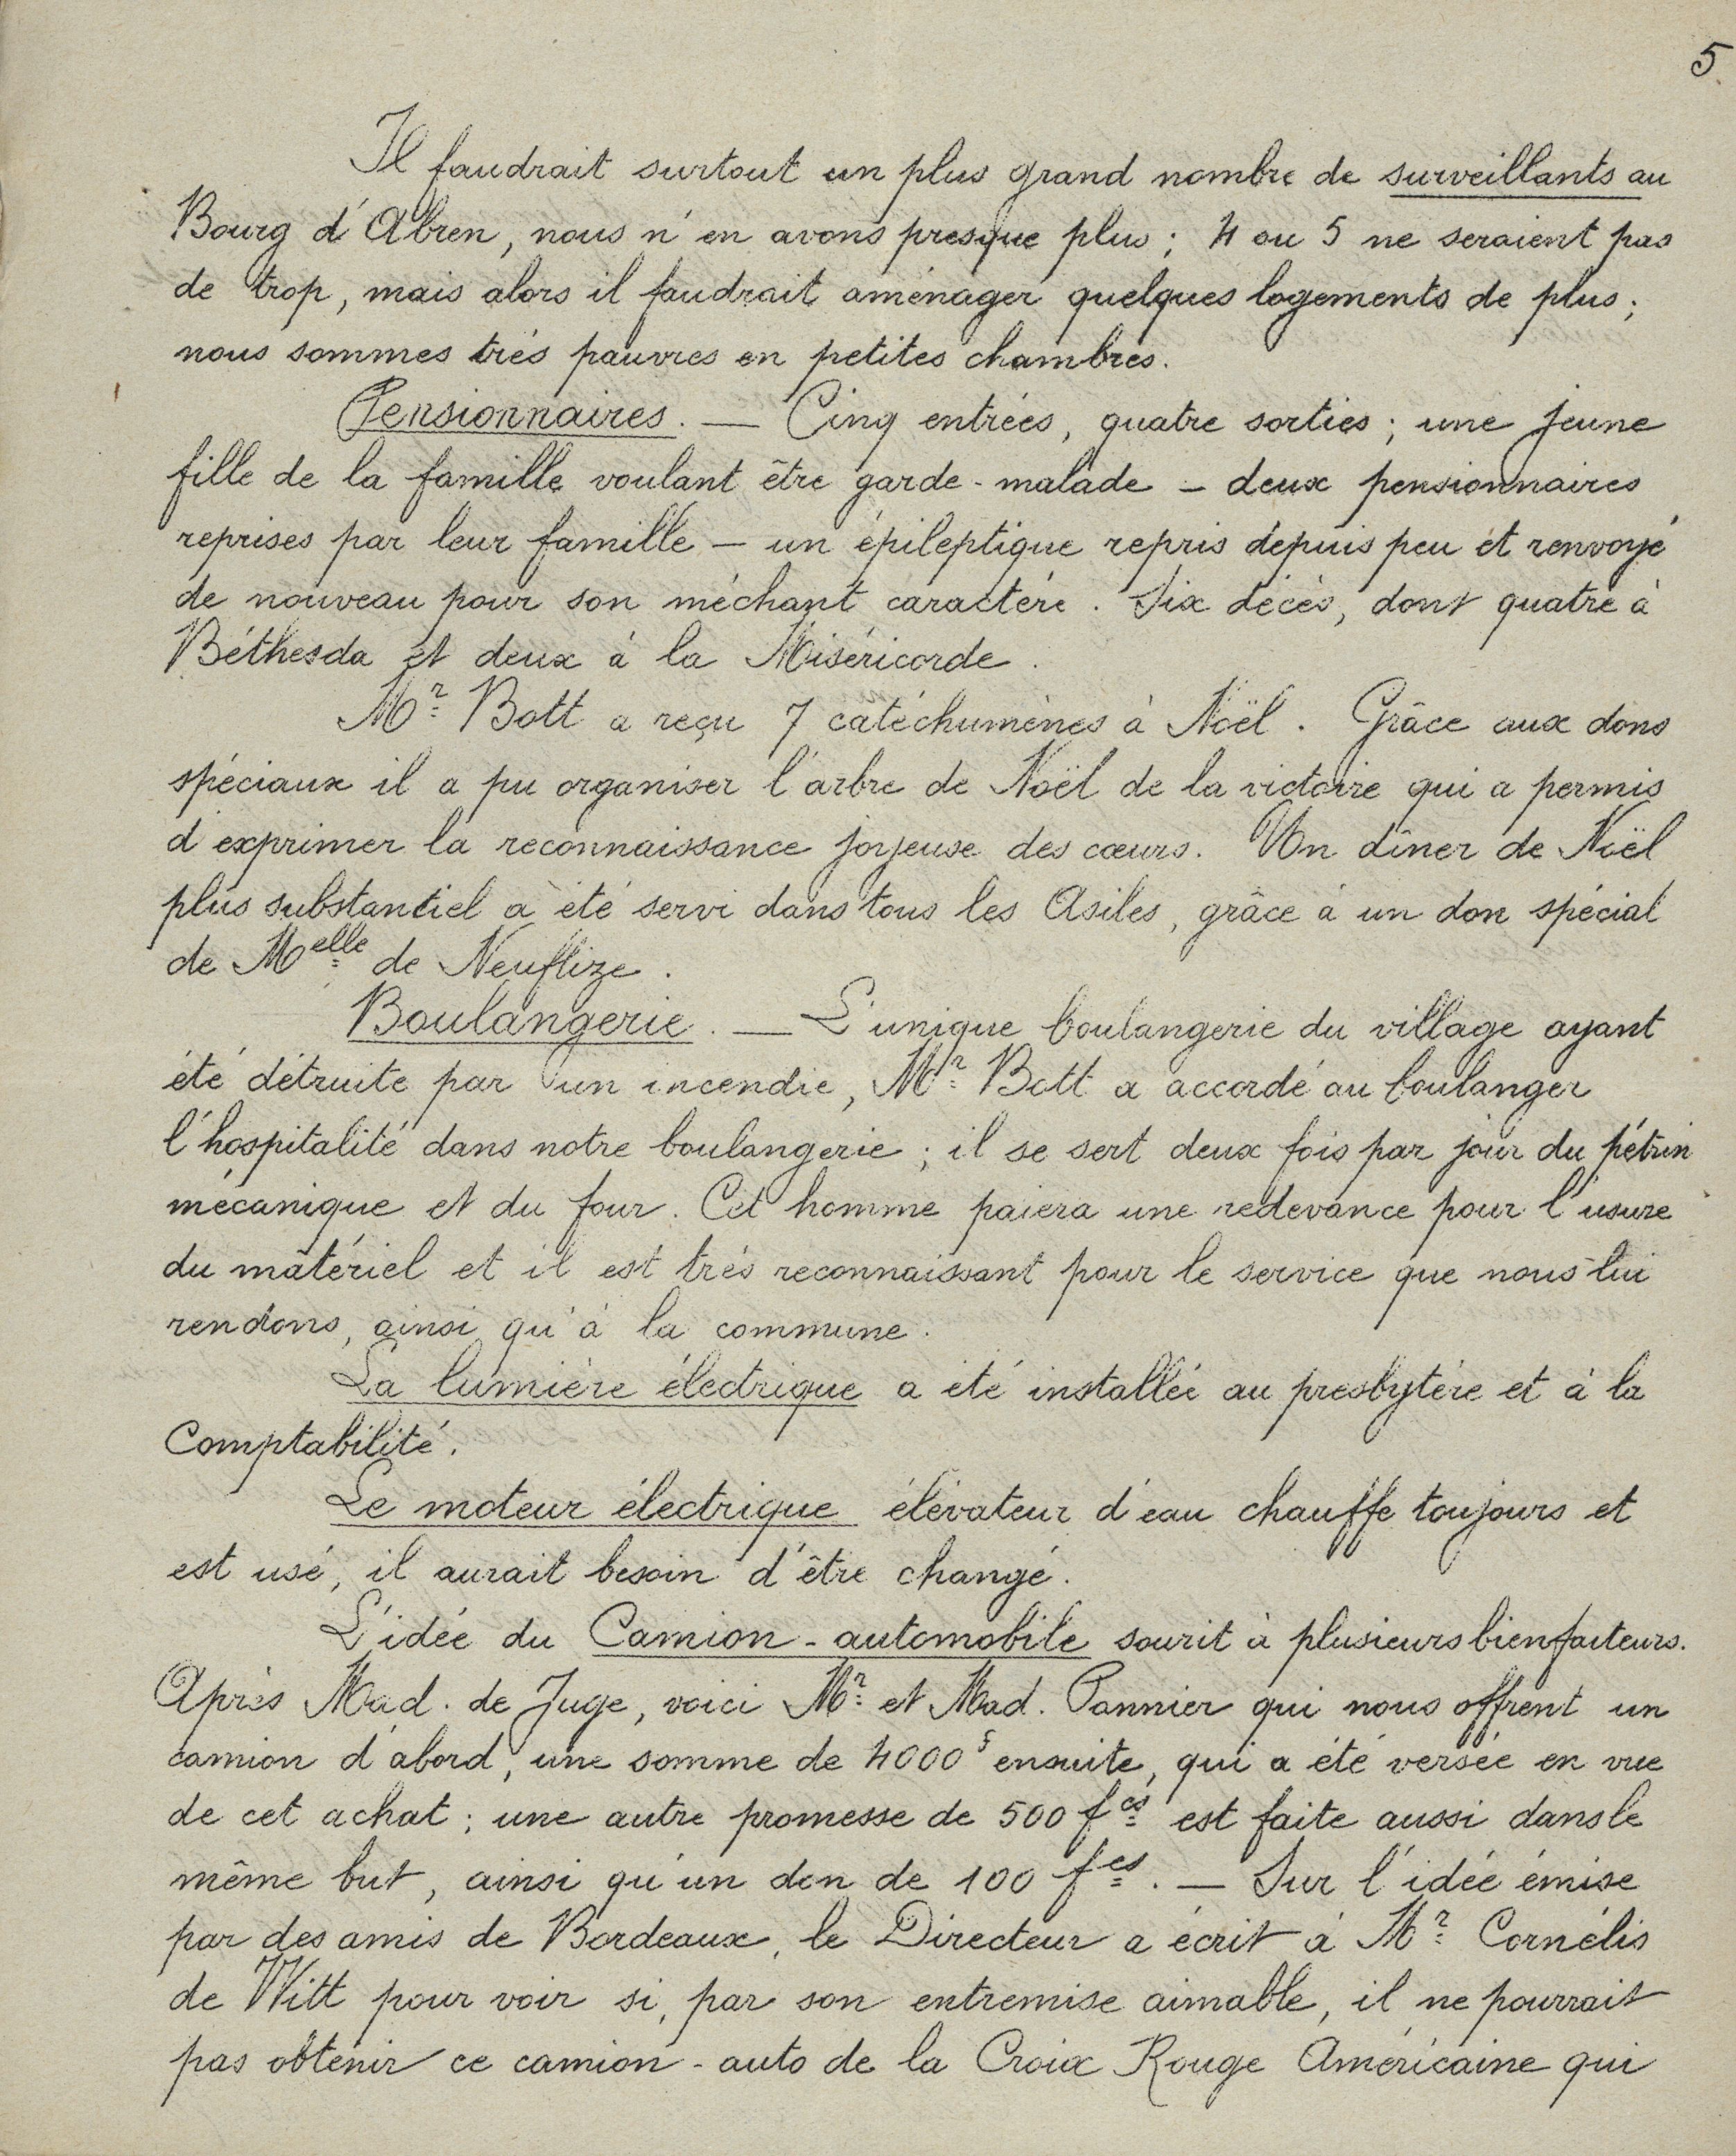 5
Il faudrait surtout un plus grand nombre de surveillants au
Bourg d'Abren, nous n'en avons presque plus ; 4 ou 5 ne seraient pas
de trop, mais alors il faudrait aménager quelques logements de plus ;
nous sommes très pauvres en petites chambres.
Pensionnaires. — Cinq entrées, quatre sorties ; une jeune
fille de la famille voulant être garde-malade – deux pensionnaires
reprises par leur famille – un épileptique repris depuis peu et renvoyé
de nouveau pour son méchant caractère. Six décès, dont quatre à
Béthesda et deux à la Miséricorde.
Mr Bott a reçu 7 catéchumènes à Noël. Grâce aux dons
spéciaux il a pu organiser l'arbre de Noël de la victoire qui a permis
d'exprimer la reconnaissance joyeuse des cœurs. Un dîner de Noël
plus substantiel a été servi dans tous les Asiles, grâce à un don spécial
de Melle de Neuflize.
Boulangerie. — L'unique boulangerie du village ayant
été détruite par un incendie, Mr Bott a accordé au boulanger
l'hospitalité dans notre boulangerie ; il se sert deux fois par jour du pétrin
mécanique et du four. Cet homme paiera une redevance pour l'usure
du matériel et il est très reconnaissant pour le service que nous lui
rendons, ainsi qu'à la commune.
La lumière électrique a été installée au presbytère et à la
Comptabilité.
Le moteur électrique élévateur d'eau chauffe toujours et
est usé, il aurait besoin d'être changé.
L'idée du Camion-automobile sourit à plusieurs bienfaiteurs.
Après Mad. de Juge, voici Mr et Mad. Pannier qui nous offrent un
camion d'abord, une somme de 4000f ensuite, qui a été versée en vue
de cet achat ; une autre promesse de 500 fcs est faite aussi dans le
même but, ainsi qu'un don de 100 fcs. — Sur l'idée émise
par des amis de Bordeaux, le Directeur a écrit à Mr Cornélis
de Witt pour voir si, par son entremise aimable, il ne pourrait
pas obtenir ce camion-auto de la Croix Rouge Américaine qui